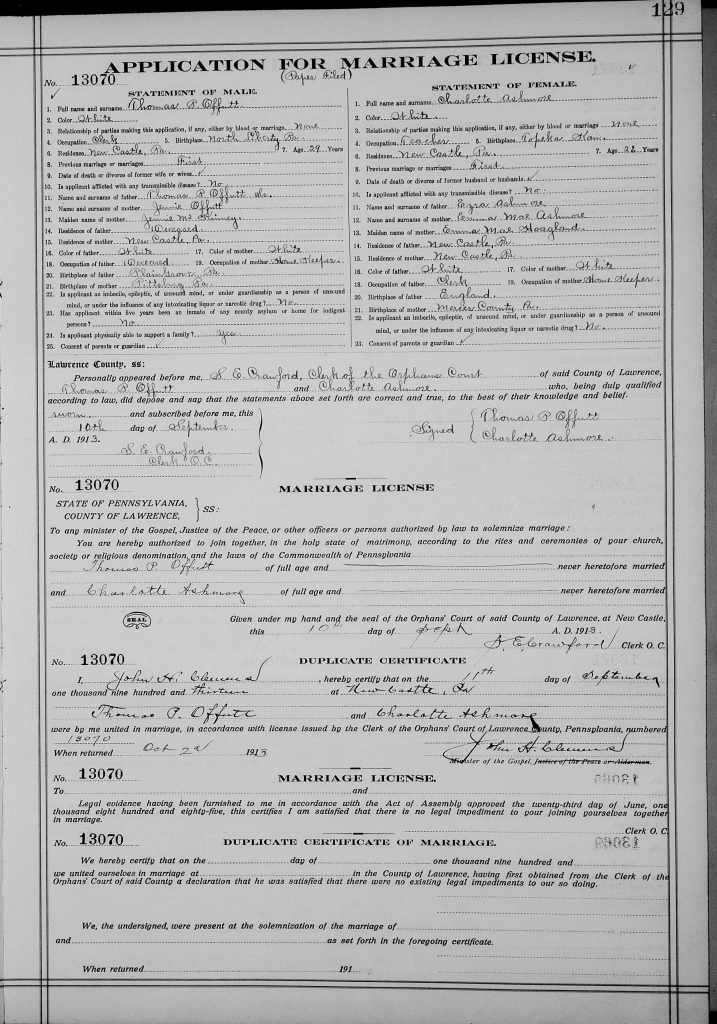 129
APPLICATION FOR MARRIAGE LICENSE.
No. 13070 (Paper Filed)
STATEMENT OF MALE.
1. Full name and surname Thomas P. Offutt
2. Color White
3. Relationship of parties making this application, if any, either by blood or marriage. None
4. Occupation Clerk 5. Birthplace North Liberty Pa.
6. Residence New Castle, Pa. 7. Age 29 Years
8. Previous marriage or marriages First
9. Date of death or divorce of former wife or wives ✓
10. Is applicant afflicted with any transmissible disease? No
11. Name and surname of father Thomas P Offutt
12. Name and surname of mother Jennie Offutt
13. Maiden name of mother Jennie Mc Kinney
14. Residence of father Deceased
15. Residence of mother New Castle, Pa.
16. Color of father White 17. Color of mother White
18. Occupation of father Deceased 19. Occupation of mother Home Keeper
20. Birthplace of father Plaingrove, Pa.
21. Birthplace of mother Pittsburg, Pa.
22. Is applicant an imbecile, epileptic, of unsound mind, or under guardianship as a person of unsound
mind, or under the influence of any intoxicating liquor or narcotic drug? No.
23. Has applicant within five years been an inmate of any county asylum or home for indigent
persons? No
24. Is applicant physically able to support a family? Yes
25. Consent of parents or guardian ✓
STATEMENT OF FEMALE.
1. Full name and surname Charlotte Ashmore
2. Color White.
3. Relationship of parties making this application, if any, either by blood or marriage None
4. Occupation Teacher 5. Birthplace Topeka Kan.
6. Residence New Castle, Pa. 7. Age 28 Years
8. Previous marriage or marriages First
9. Date of death or divorce of former husband or husbands ✓
10. Is applicant afflicted with any transmissible disease? No.
11. Name and surname of father Ezra Ashmore
12. Name and surname of mother Emma Mae Ashmore
13. Maiden name of mother Emma Mae Hoagland
14. Residence of father New Castle, Pa.
15. Residence of mother New Castle, Pa.
16. Color of father White 17. Color of mother White
18. Occupation of father Clerk 19. Occupation of mother Home Keeper
20. Birthplace of father England.
21. Birthplace of mother Mercer County, Pa.
22. Is applicant an imbecile, epileptic, of unsound mind, or under guardianship as a person of unsound
mind, or under the influence of any intoxicating liquor or narcotic drug? No.
23. Consent of parents or guardian ✓
Lawrence County, ss:
Personally appeared before me, S. E. Crawford, Clerk of the Orphans Court of said County of Lawrence,
Thomas P. Offutt and Charlotte Ashmore. who, being duly qualified
according to law, did depose and say that the statements above set forth are correct and true, to the best of their knowledge and belief.
sworn and subscribed before me, this
10th day of September.
A. D. 1913.
S. E. Crawford.
Clerk O.C.
Signed
Thomas P. Offutt
Charlotte Ashmore.
No. 13070 MARRIAGE LICENSE
STATE OF PENNSYLVANIA,
COUNTY OF LAWRENCE, SS:
To any minister of the Gospel, Justice of the Peace, or other officers or persons authorized by law to solemnize marriage:
You are hereby authorized to join together, in the holy state of matrimony, according to the rites and ceremonies of your church,
society or religious denomination, and the laws of the Commonwealth of Pennsylvania
Thomas P. Offutt of full age and never heretofore married
and Charlotte Ashmore of full age and never heretofore married
SEAL
Given under my hand and the seal of the Orphans' Court of said County of Lawrence, at New Castle,
this 10th day of Sept A. D. 1913.
S. E. Crawford Clerk O. C.
No. 13070 DUPLICATE CERTIFICATE
I, John H. Clemens, hereby certify that on the 11th day of September
one thousand nine hundred and thirteen at New Castle, Pa
Thomas P. Offutt and Charlotte Ashmore
were by me united in marriage, in accordance with license issued by the Clerk of the Orphans' Court of Lawrence County, Pennsylvania, numbered
13070
When returned Oct 2d 1913 John H. Clemens
Minister of the Gospel, Justice of the Peace or Alderman.
No. 13070 MARRIAGE LICENSE.
To and
Legal evidence having been furnished to me in accordance with the Act of Assembly approved the twenty-third day of June, one
thousand eight hundred and eighty-five, this certifies I am satisfied that there is no legal impediment to your joining yourselves together
in marriage.
Clerk O. C.
No. 13070 DUPLICATE CERTIFICATE OF MARRIAGE.
We hereby certify that on the day of one thousand nine hundred and
we united ourselves in marriage at in the County of Lawrence, having first obtained from the Clerk of the
Orphans' Court of said County a declaration that he was satisfied that there were no existing legal impediments to our so doing.
We, the undersigned, were present at the solemnization of the marriage of
and as set forth in the foregoing certificate.
When returned 191